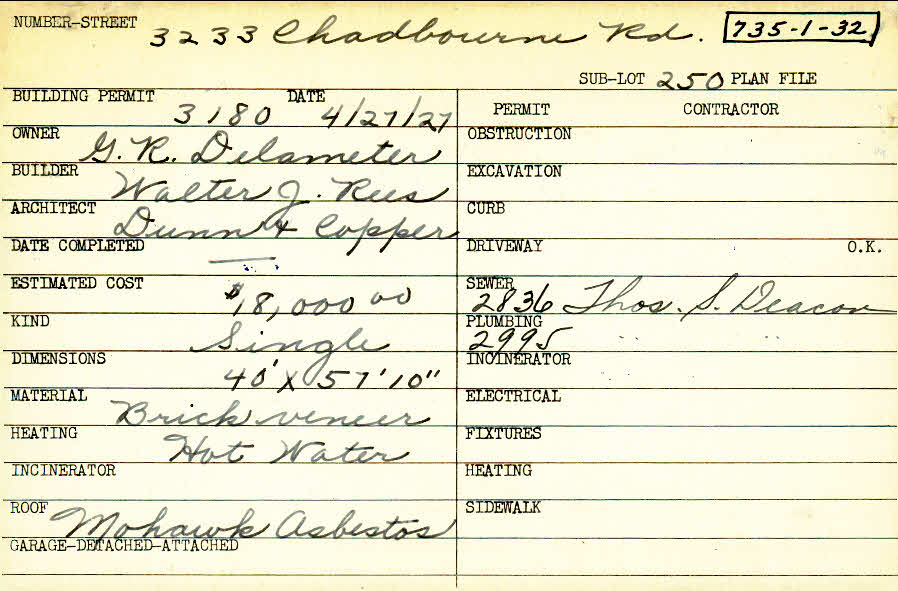 NUMBER-STREET 3233 Chadbourne Rd. 735-1-32
SUB-LOT 250 PLAN FILE
BUILDING PERMIT 3180 DATE 4/27/27
PERMIT CONTRACTOR
OWNER G. R. Delameter
OBSTRUCTION
BUILDER Walter J. Rees
EXCAVATION
ARCHITECT Dunn & Copper
CURB
DATE COMPLETED —
DRIVEWAY O.K.
ESTIMATED COST $18,000 00
SEWER 2836 Thos. S. Deacon
KIND Single
PLUMBING 2995 " "
DIMENSIONS 40' X 57'10"
INCINERATOR
MATERIAL Brick veneer
ELECTRICAL
HEATING Hot Water
FIXTURES
INCINERATOR
HEATING
ROOF Mohawk Asbestos
SIDEWALK
GARAGE-DETACHED-ATTACHED